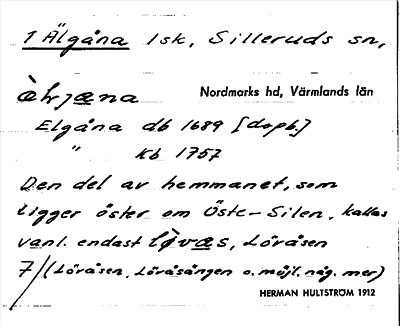 1 Älgåna 1sk, Silleruds sn,
Nordmarks hd, Värmlands län
Elgåna db 1689 [dopb.]
" Kb 1757
Den del av hemmanet, som
ligger öster om Öste-Silen, kallas
vanl. endast lövas, Löråsen
7/(Löråsen, Löråsängen o. möjl. någ. mer)
HERMAN HULTSTRÖM 1912